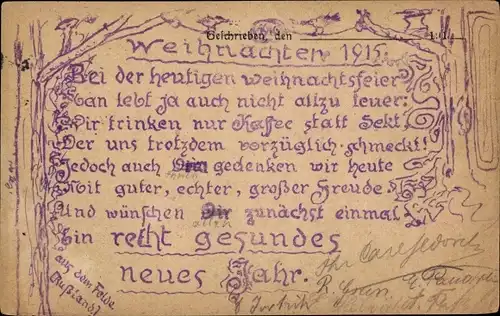 Geschrieben, den 191
Weihnachten 1915.
Bei der heutigen Weihnachtsfeier
Man lebt ja auch nicht allzu teuer:
Wir trinken nur Kaffee statt Sekt,
Der uns trotzdem vorzüglich schmeckt!
Jedoch auch gedenken wir heute
Mit guter, echter, großer Freude
Und wünschen zunächst einmal
Ein recht gesundes
neues Jahr.
aus dem Felde
(Rußland)
Ihr
R.